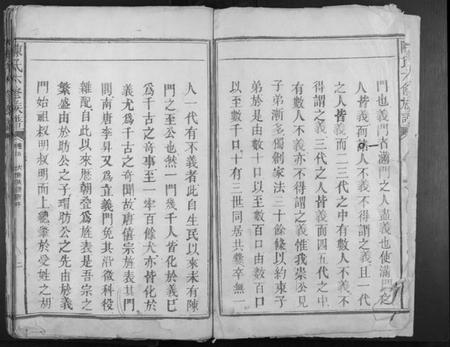 門也義門古滿門之人盡義也使滿門之
人皆義而一人不義不得謂之義且一代
之人皆義而二三代之中有數人不義不
得謂之義三代之人皆義而四五代之中
有數人不義亦不得謂之義惟我崇公見
子弟漸多獨創家法三十餘條以約束子
弟於是由數十口以至數百口由數百口
以至數千口十有三世同居共爨卒無一
人一代有不義者此自生民以來未有陳
門之至公也然一門幾千人皆化於義已
為千古之奇事至一牢百餘犬亦皆化於
義尤為千古之奇聞故唐僖宗旌表其門
間南唐李昇又為立義門免其沿徵科役
雜配自此以來歷朝登為旌表是吾宗之
繁盛由於助公之子環助公之先由於義
門始祖叔明叔明而上肇於受姓之胡
陳氏六修族譜